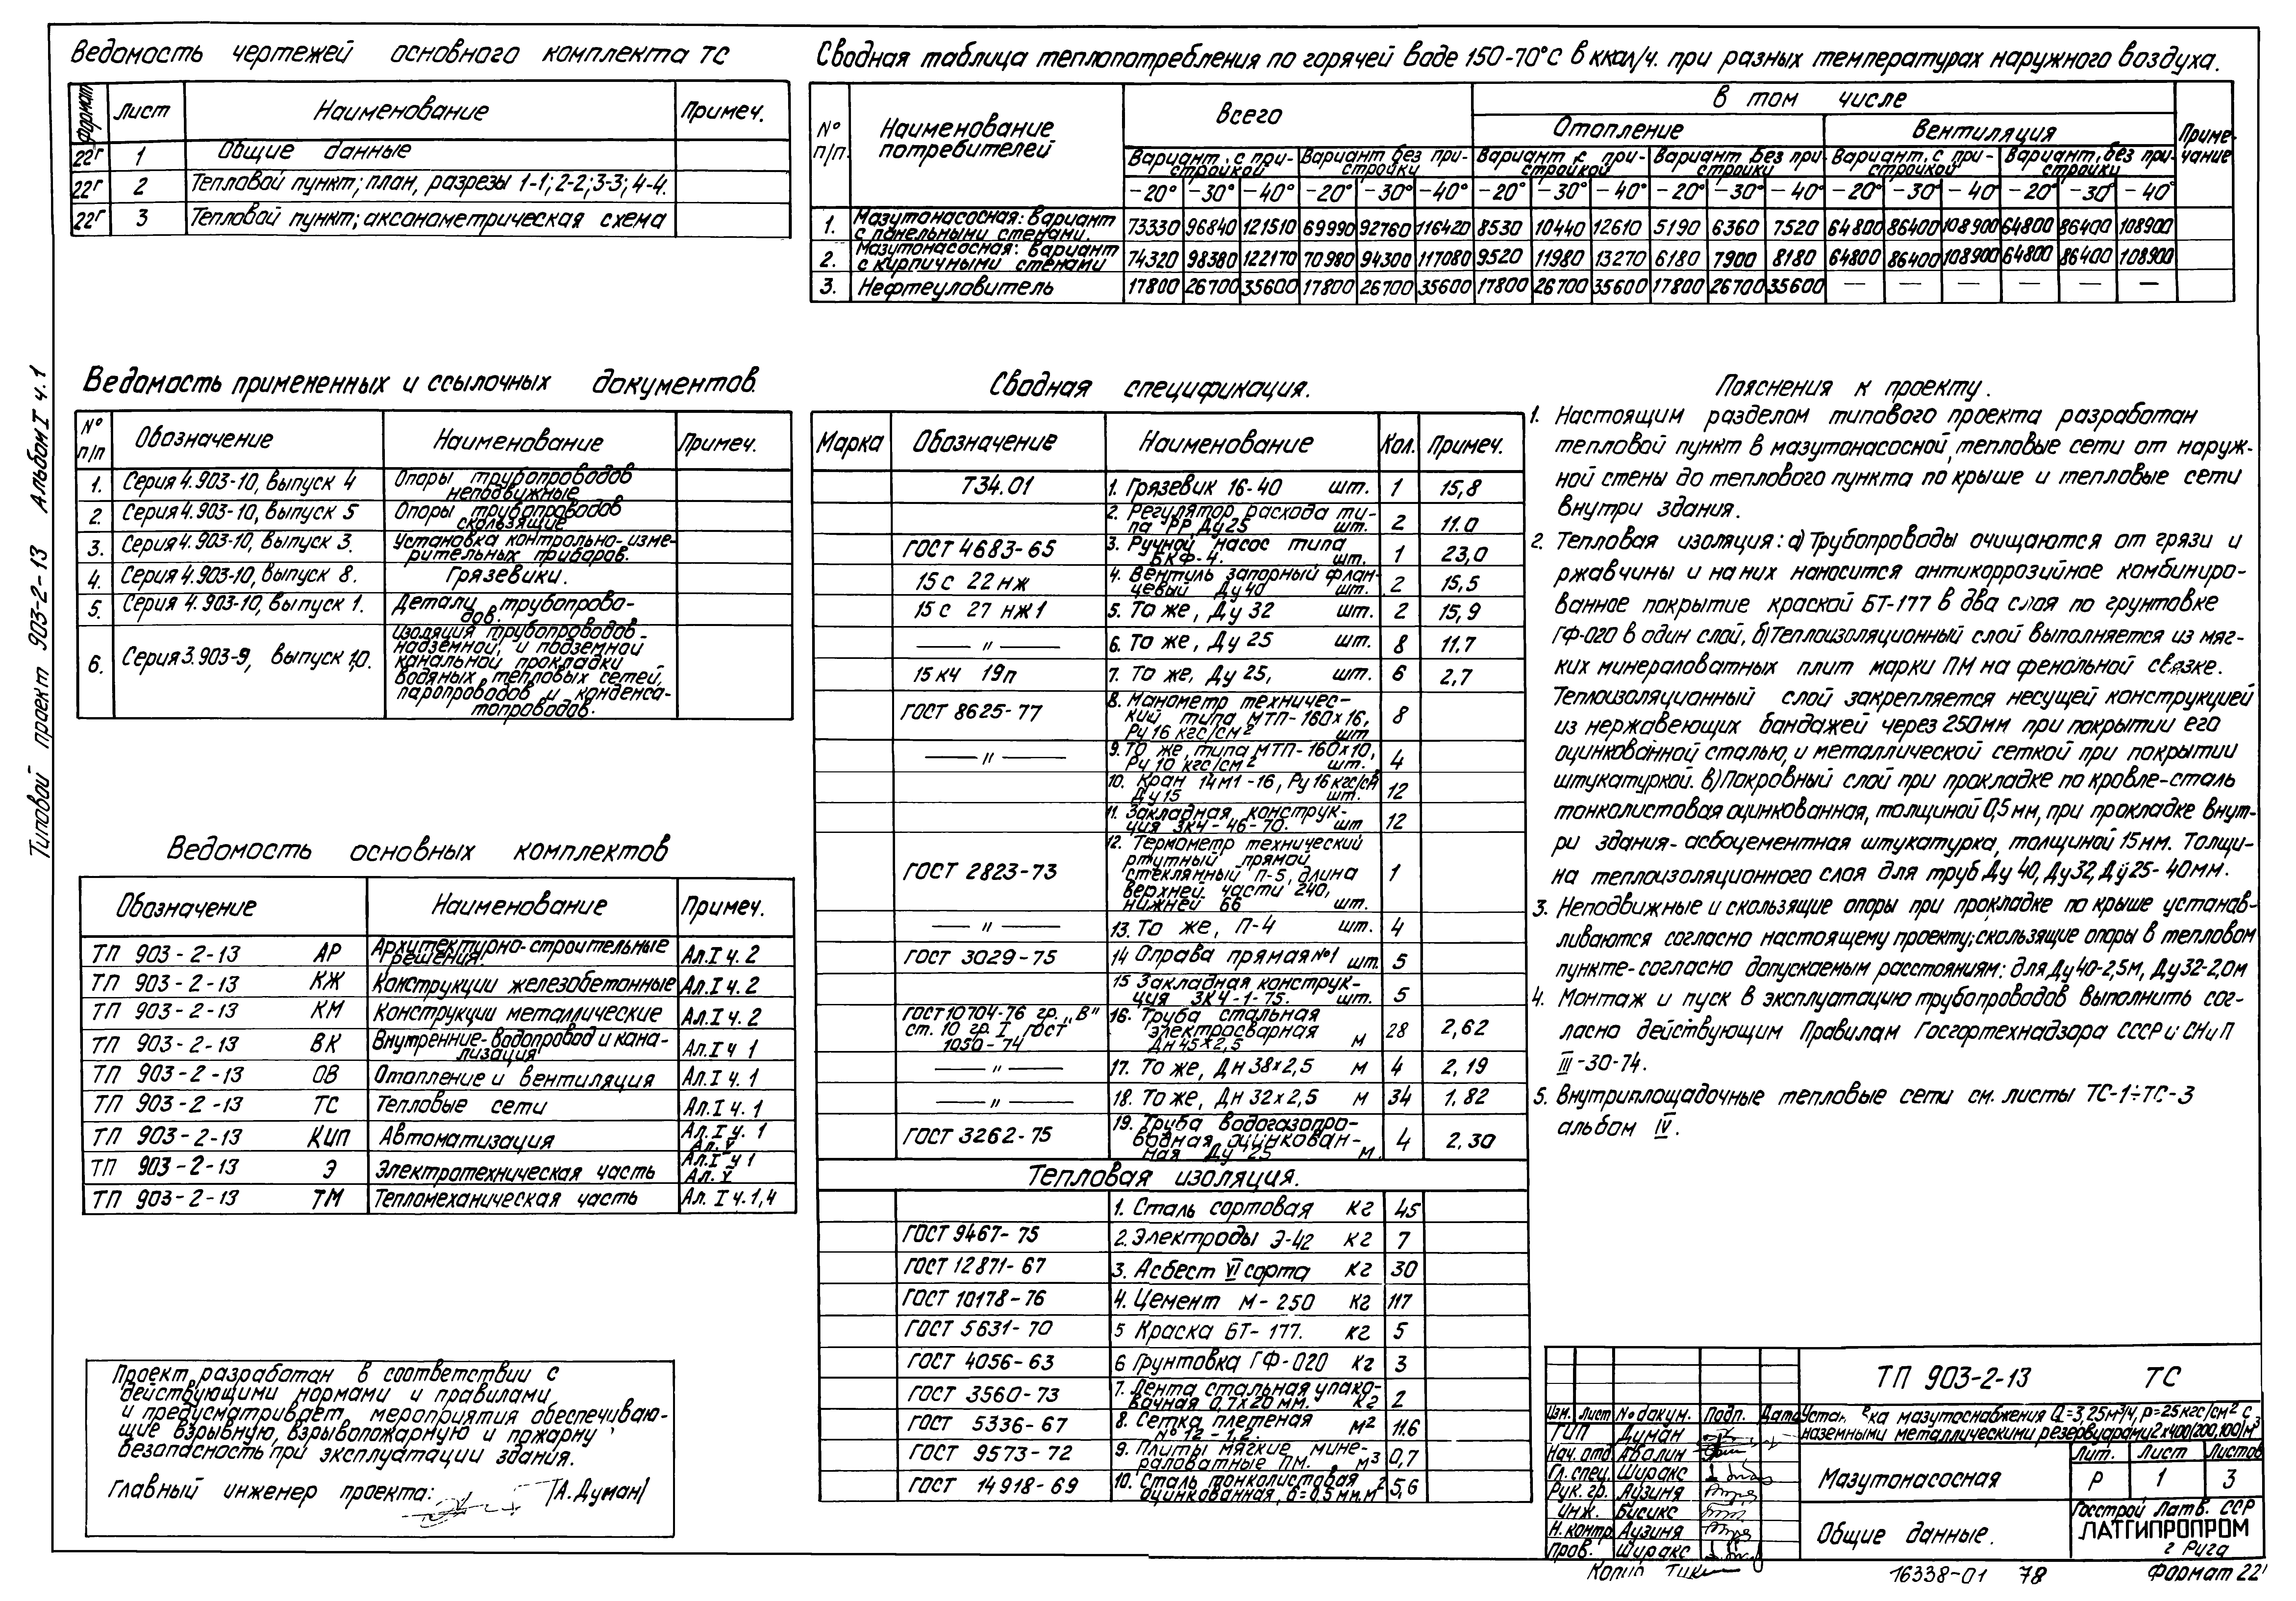 Типовой проект 903-2-13 Альбом I ч.1
Ведомость чертежей основного комплекта ТС
Формат Лист Наименование Примеч.
22г 1 Общие данные
22г 2 Тепловой пункт; план, разрезы 1-1; 2-2; 3-3; 4-4.
22г 3 Тепловой пункт; аксонометрическая схема
Сводная таблица теплопотребления по горячей воде 150-70°С в ккал/ч. при разных температурах наружного воздуха.
№ п/п. Наименование потребителей Всего в том числе Примечание
Отопление Вентиляция
Вариант с пристройкой Вариант без пристройки Вариант с пристройкой Вариант без пристройки Вариант с пристройкой Вариант без пристройки
-20° -30° -40° -20° -30° -40° -20° -30° -40° -20° -30° -40° -20° -30° -40° -20° -30° -40°
1. Мазутонасосная: вариант с панельными стенами. 73330 96840 121510 69990 92760 116420 8530 10440 12610 5190 6360 7520 64800 86400 108900 64800 86400 108900
2. Мазутонасосная: вариант с кирпичными стенами 74320 98380 122170 70980 94300 117080 9520 11980 13270 6180 7900 8180 64800 86400 108900 64800 86400 108900
3. Нефтеуловитель 17800 26700 35600 17800 26700 35600 17800 26700 35600 17800 26700 35600 — — — — — —
Ведомость примененных и ссылочных документов.
№ п/п Обозначение Наименование Примеч.
1. Серия 4.903-10, выпуск 4 Опоры трубопроводов неподвижные
2. Серия 4.903-10, выпуск 5 Опоры трубопроводов скользящие
3. Серия 4.903-10, выпуск 3. Установка контрольно-измерительных приборов.
4. Серия 4.903-10, выпуск 8. Грязевики.
5. Серия 4.903-10, выпуск 1. Детали трубопроводов.
6. Серия 3.903-9, выпуск 1,0. Изоляция трубопроводов надземной и подземной канальной прокладки водяных тепловых сетей, паропроводов и конденсатопроводов.
Ведомость основных комплектов
Обозначение Наименование Примеч.
ТП 903-2-13 АР Архитектурно-строительные решения. Ал.I ч.2
ТП 903-2-13 КЖ Конструкции железобетонные Ал.I ч.2
ТП 903-2-13 КМ Конструкции металлические Ал.I ч.2
ТП 903-2-13 ВК Внутренние-водопровод и канализация Ал.I ч 1
ТП 903-2-13 ОВ Отопление и вентиляция Ал.I ч.1
ТП 903-2-13 ТС Тепловые сети Ал.I ч.1
ТП 903-2-13 КИП Автоматизация Ал.I ч.1 Ал.V
ТП 903-2-13 Э Электротехническая часть Ал.I ч 1 Ал.V
ТП 903-2-13 ТМ Тепломеханическая часть Ал. I ч.1,4
Проект разработан в соответствии с
действующими нормами и правилами
и предусматривает мероприятия обеспечиваю-
щие взрывную, взрывопожарную и пожарну
безопасность при эксплуатации здания.
Главный инженер проекта: /А.Думан/
Сводная спецификация.
Марка Обозначение Наименование Кол. Примеч.
Т34.01 1. Грязевик 16-40 шт. 1 15,8
2. Регулятор расхода типа РР Ду25 шт. 2 11.0
ГОСТ 4683-65 3. Ручной насос типа БКФ-4. шт. 1 23,0
15 с 22 нж 4. Вентиль запорный фланцевый Ду40 шт. 2 15,5
15 с 27 нж 1 5. То же, Ду 32 шт. 2 15,9
— " — 6. То же, Ду 25 шт. 8 11,7
15 кч 19п 7. То же, Ду 25, шт. 6 2,7
ГОСТ 8625-77 8. Манометр технический типа МТП-160х16, Ру 16 кгс/см² шт 8
— " — 9. То же, типа МТП-160х10, Ру 10 кгс/см² шт. 4
10. Кран 14м1-16, Ру 16 кгс/см Ду15 шт. 12
11. Закладная конструкция ЗК4-46-70. шт 12
ГОСТ 2823-73 12. Термометр технический ртутный прямой стеклянный П-5, длина верхней части 240, нижней 66 шт. 1
— " — 13. То же, П-4 шт. 4
ГОСТ 3029-75 14 Оправа прямая №1 шт 5
15 Закладная конструкция ЗК4-1-75. шт. 5
ГОСТ 10704-76 гр. "В" ст. 10 гр. I ГОСТ 1050-74 16. Труба стальная электросварная Дн45х2,5 м 28 2,62
— " — 17. То же, Дн 38х2,5 м 4 2,19
— " — 18. То же, Дн 32х2,5 м 34 1.82
ГОСТ 3262-75 19. Труба водогазопроводная, оцинкованная Ду 25 м. 4 2,30
Тепловая изоляция.
1. Сталь сортовая кг 45
ГОСТ 9467-75 2. Электроды Э-42 кг 7
ГОСТ 12871-67 3. Асбест VI сорта кг 30
ГОСТ 10178-76 4. Цемент М-250 кг 117
ГОСТ 5631-70 5 Краска БТ-177. кг 5
ГОСТ 4056-63 6 Грунтовка ГФ-020 кг 3
ГОСТ 3560-73 7. Лента стальная упаковочная 0,7х20мм. кг 2
ГОСТ 5336-67 8. Сетка плетеная №12-1,2. м² 11.6
ГОСТ 9573-72 9. Плиты мягкие минераловатные ПМ. м³ 0,7
ГОСТ 14918-69 10. Сталь тонколистовая оцинкованная, δ=0,5мм. м² 5,6
Пояснения к проекту.
1. Настоящим разделом типового проекта разработан
тепловой пункт в мазутонасосной, тепловые сети от наруж-
ной стены до теплового пункта по крыше и тепловые сети
внутри здания.
2. Тепловая изоляция: а) Трубопроводы очищаются от грязи и
ржавчины и на них наносится антикоррозийное комбиниро-
ванное покрытие краской БТ-177 в два слоя по грунтовке
ГФ-020 в один слой, б) Теплоизоляционный слой выполняется из мяг-
ких минераловатных плит марки ПМ на фенольной связке.
Теплоизоляционный слой закрепляется несущей конструкцией
из нержавеющих бандажей через 250мм при покрытии его
оцинкованной сталью, и металлической сеткой при покрытии
штукатуркой. в) Покровный слой при прокладке по кровле-сталь
тонколистовая оцинкованная, толщиной 0,5мм, при прокладке внут-
ри здания-асбоцементная штукатурка, толщиной 15мм. Толщи-
на теплоизоляционного слоя для труб Ду 40, Ду32, Ду25-40мм.
3. Неподвижные и скользящие опоры при прокладке по крыше устанав-
ливаются согласно настоящему проекту; скользящие опоры в тепловом
пункте-согласно допускаемым расстояниям: для Ду40-2,5м, Ду32-2,0м
4. Монтаж и пуск в эксплуатацию трубопроводов выполнить сог-
ласно действующим Правилам Госгортехнадзора СССР и СНиП
III-30-74.
5. Внутриплощадочные тепловые сети см. листы ТС-1÷ТС-3
альбом IV.
ТП 903-2-13 ТС
Изм. Лист № докум. Подп. Дата
Устан вка мазутоснабжения Q=3,25м³/ч, р=25кгс/см² с
наземными металлическими резервуарами 2х400(200,100)м³
ГИП Думан
Нач. отд Абалин
Гл. спец. Ширакс
Рук. гр. Аузиня
Инж. Бисикс
Н.контр Аузиня
Пров. Ширакс
Мазутонасосная
Лит. Лист Листов
Р 1 3
Общие данные.
Госстрой Латв. ССР
ЛАТГИПРОПРОМ
г Рига
Копир
16338-01 78
Формат 22г